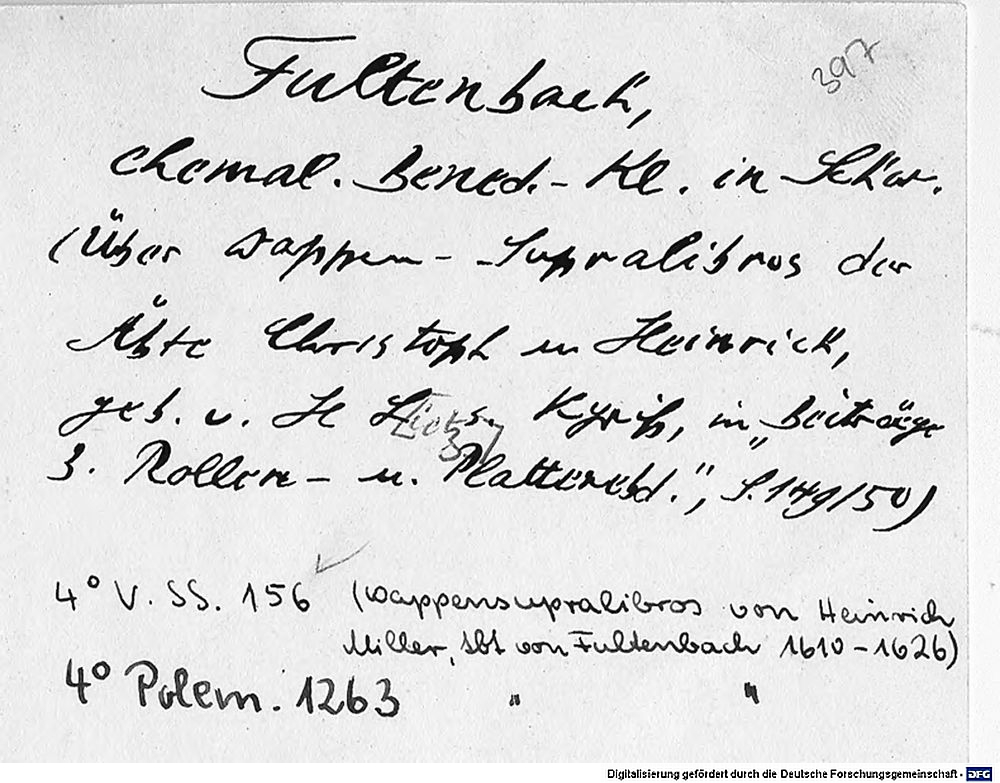 397
Fultenbach,
ehemal. Bened.-Kl. in Schw.
(Über Wappen-Supralibros der
Äbte Christoph u Heinrich,
geb. v. Kyriß, in „Beiträge
z. Rollen- u. Plattenebd.", S. 149/50)
4° V. SS. 156 (Wappensupralibros von Heinrich
Miller, Abt von Fultenbach 1610-1626)
4° Polem. 1263 " "
Digitalisierung gefördert durch die Deutsche Forschungsgemeinschaft - DFG